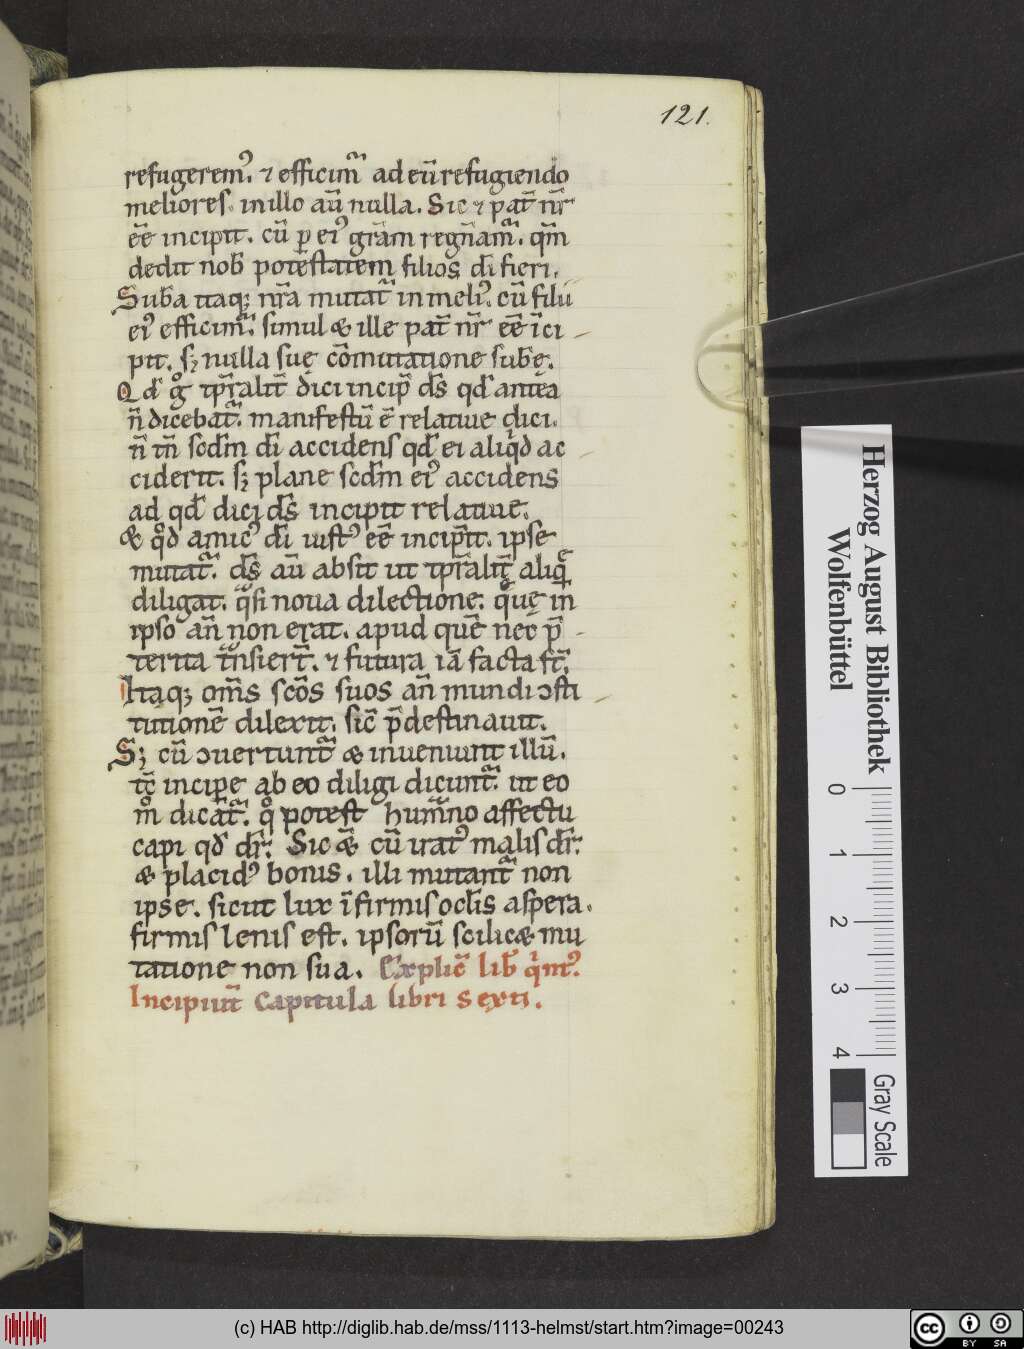 121.
refugerem᷒. ⁊ efficim᷒ ad eū refugiendo
meliores. in illo aū nulla. Sic ⁊ pat̄ nr̄
eē incipit. cū p ei᷒ grām regn̄am᷒. qm̄
dedit nob̄ potēstatem filios dī fieri.
Sub̄a itaqꝫ nr̄a mutat᷒ in meli᷒. cū filii
ei᷒ efficim᷒. simul & ille pat̄ nr̄ eē īci-
pit. sꝫ nulla suę cōmutatione sub̄ę.
Qd̄ gͦ tp̄ralit̄ dici incip̄ ds̄ qd̄ antea
n̄ dicebat᷒. manifestū ē relatiue dici.
n̄ tn̄ scdm̄ dī accidens qd̄ ei aliqd ac-
ciderit. sꝫ plane scdm̄ ei᷒ accidens
ad qd̄ dici ds̄ incipit relatiue.
& qͦd amic᷒ dī iust᷒ eē incipit. ipse
mutat᷒. ds̄ aū absit ut tp̄ralit̄ aliq̄
diligat. qᷓsi noua dilectione. quę in
ipso an̄ non erat. apud quē nec p̄-
terita tᷓnsiert̄. ⁊ futura iā facta st̄.
Itaqꝫ om̄s scōs suos an̄ mundi ↄsti-
tutionē dilexit. sic̄ p̄destinauit.
Sꝫ cū ↄuertunt᷒ & inueniunt illū.
tc̄ incipe ab eo diligi dicunt᷒. ut eo
mͦ dicat᷒. qͦ potest humᷓno affectu
capi qd̄ dr̄. Sic &̄ cū irat᷒ malis dr̄.
& placid᷒ bonis. illi mutant᷒ non
ipse. sicut lux īfirmis oclīs aspera.
firmis lenis est. ipsorū scilic& mu
tatione non sua. Explic̄ lib̄ qͥnt᷒.
Incipiūt Capitula libri Sexti.
Herzog August Bibliothek
Wolfenbüttel
0
1
2
3
4
Gray Scale
(c) HAB http://diglib.hab.de/mss/1113-helmst/start.htm?image=00243
cc
BY
SA